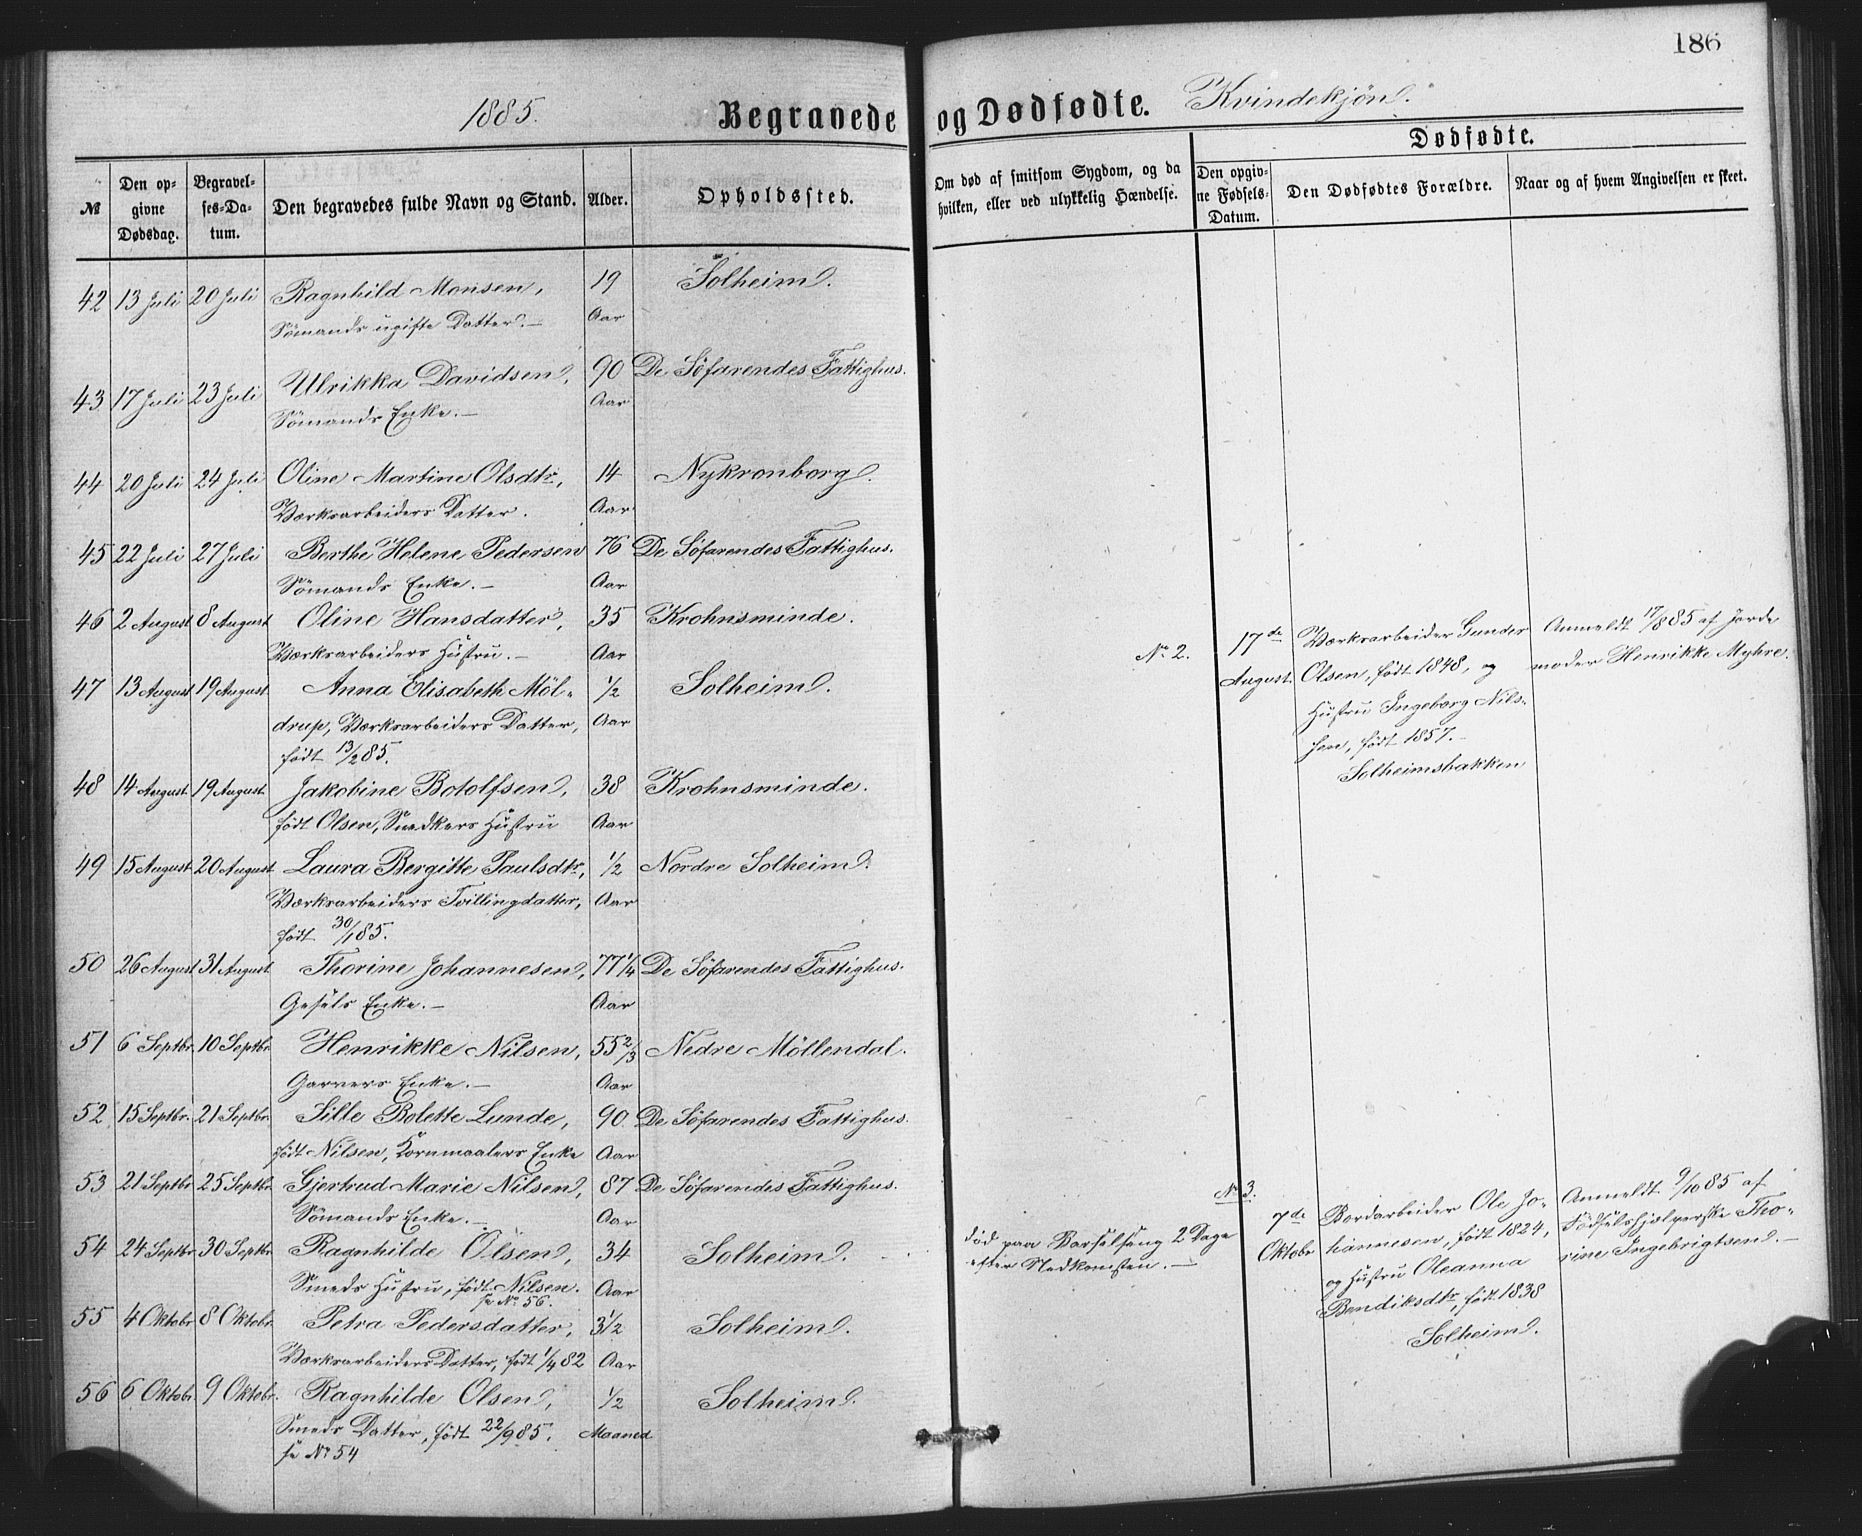 186
1885. Begravede og Dødfødte. Kvindekjøn.
№
Den op-
givne
Dødsdag.
Begravel-
ses-Da-
tum.
Den begravedes fulde Navn og Stand.
Alder.
Opholdssted.
Om død af smitsom Sygdom, og da
hvilken, eller ved ulykkelig Hændelse.
Dødfødte.
Den opgiv-
ne Fødsels-
Datum.
Den Dødfødtes Forældre.
Naar og af hvem Angivelsen er skeet.
42 13 Juli 20 Juli Ragnhild Monsen, 19 Solheim.
Sømands ugifte Datter.— Aar
43 17 Juli 23 Juli Ulrikka Davidsen, 90 De Søfarendes Fattighus.
Sømands Enke.— Aar
44 20 Juli 24 Juli Oline Martine Olsdtr, 14 Nykronborg.
Værksarbeiders Datter. Aar
45 22 Juli 27 Juli Berthe Helene Pedersen 76 De Søfarendes Fattighus.
Sømands Enke.— Aar
46 2 August 8 August Oline Hansdatter, 35 Krohnsminde.
Værksarbeiders Hustru.— Aar
47 13 August 19 August Anna Elisabeth Möl- 1/2 Solheim.
drup, Værksarbeiders Datter, Aar
født 13/2 85.
48 14 August 19 August Jakobine Botolfsen, 38 Krohnsminde.
født Olsen, Snedkers Hustru Aar
49 15 August 20 August Laura Bergitte Paulsdtr, 1/2 Nordre Solheim.
Værksarbeiders Tvillingdatter, Aar
født 30/1 85.
50 26 August 31 August Thorine Johannesen, 77 1/4 De Søfarendes Fattighus.
Gesels Enke.— Aar
51 6 Septbr. 10 Septbr. Henrikke Nilsen, 55 2/3 Nedre Möllendal.
Garvers Enke.— Aar
52 15 Septbr. 21 Septbr. Sille Bolette Lunde, 90 De Søfarendes Fattighus.
født Nilsen, Kornmaalers Enke Aar
53 21 Septbr 25 Septbr. Gjertrud Marie Nilsen, 87 De Søfarendes Fattighus.
Sømands Enke.— Aar
54 24 Septbr 30 Septbr. Ragnhilde Olsen, 34 Solheim.
Smeds Hustru, født Nilsen. Aar
se No 56.
død paa Barselseng 2 Dage
efter Nedkomsten.—
55 4 Oktobr. 8 Oktobr. Petra Pedersdatter, 3 1/2 Solheim.
Værksarbeiders Datter, født 1/4 82 Aar
56 6 Oktobr. 9 Oktobr. Ragnhilde Olsen, 1/2 Solheim.
Smeds Datter, født 22/9 85. Maaned
se No 54
No 2. 17de Værksarbeider Gunder Anmeldt 17/8 85 af Jorde
August. Olsen, født 1848, og moder Henrikke Myhre.
Hustru Ingeborg Nils-
sen, født 1857.—
Solheimsbakken
No 3.
7de Bordarbeider Ole Jo- Anmeldt 9/10 85 af
Oktobr hannesen, født 1824, Fødselshjælperske Tho-
og Hustru Oleanna rine Ingebrigtsen.—
Bendiksdtr, født 1838
Solheim.